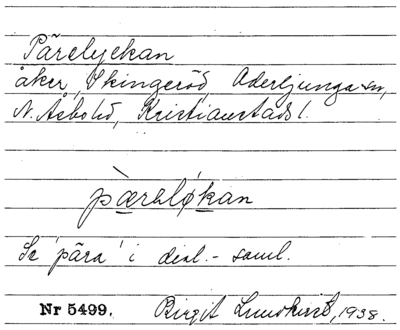 Pärelyckan
åker, Skingeröd, Oderljunga sn,
N. Åsbo hd, Kristianstads l.
pæ̀rəløkan
Se 'pära' i dial.-saml.
Nr 5499. Birgit Lundkvist, 1938.